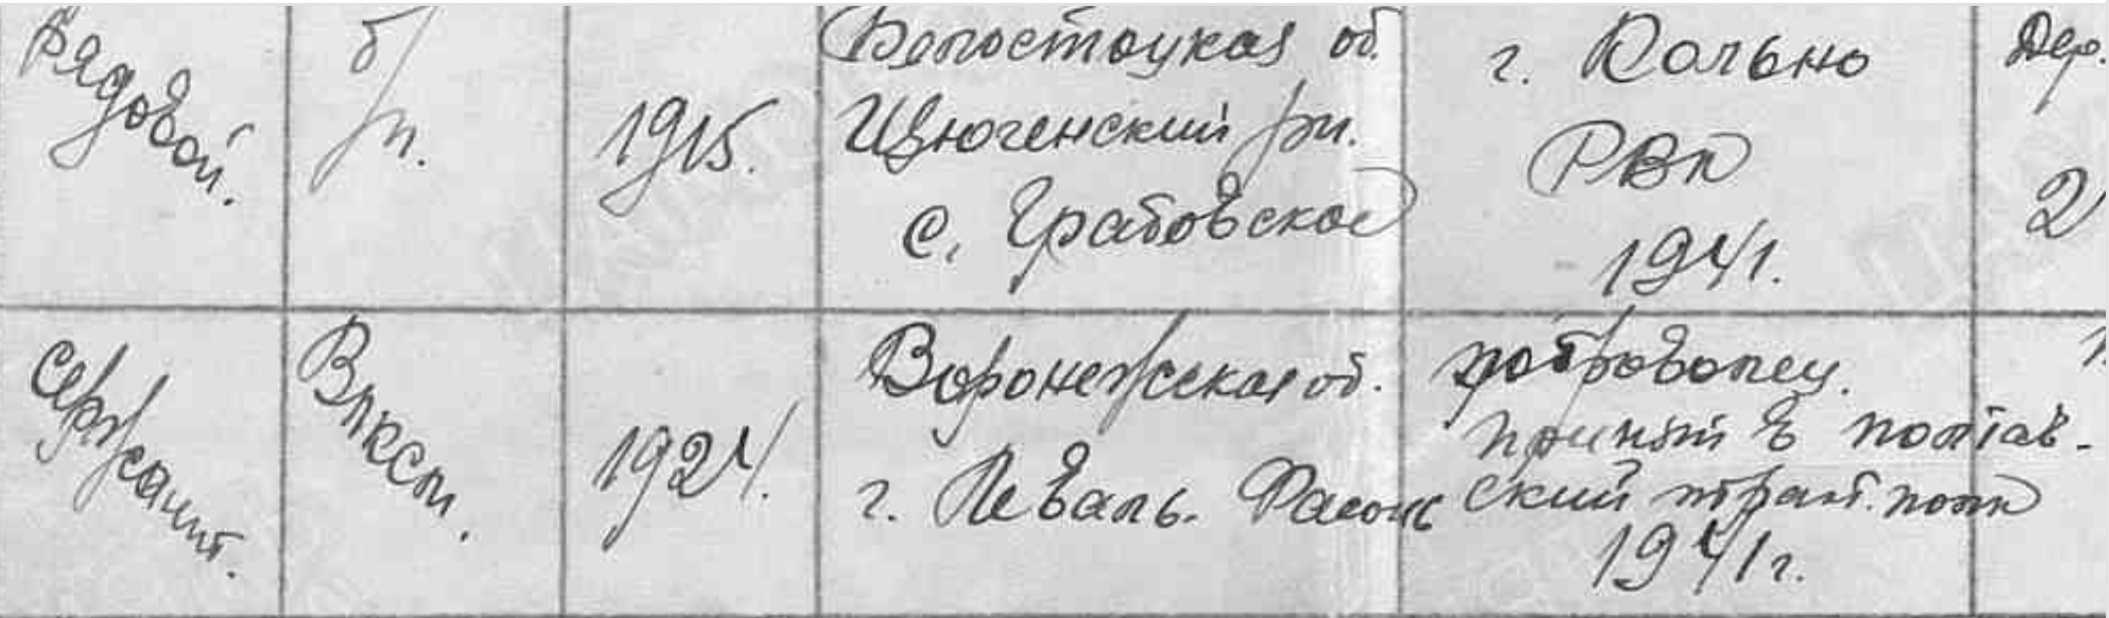 Рядовой.
б/п.
1915.
Белостоцкая об.
Цзюгенский рн.
с. Грабовское
г. Кольно
РВК
1941.
Дер.
2
Сержант.
Влксм.
1924.
Воронежская об.
г.
доброволец.
принят в полтав-
ский тракт. полк
1941г.